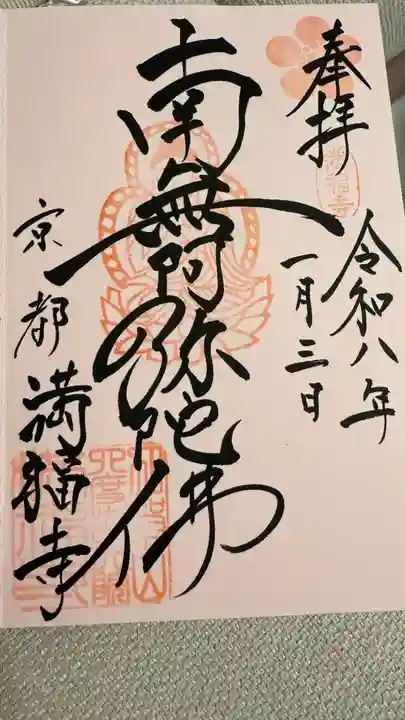 奉拝
令和八年
一月三日
南無阿弥陀佛
京都満福寺